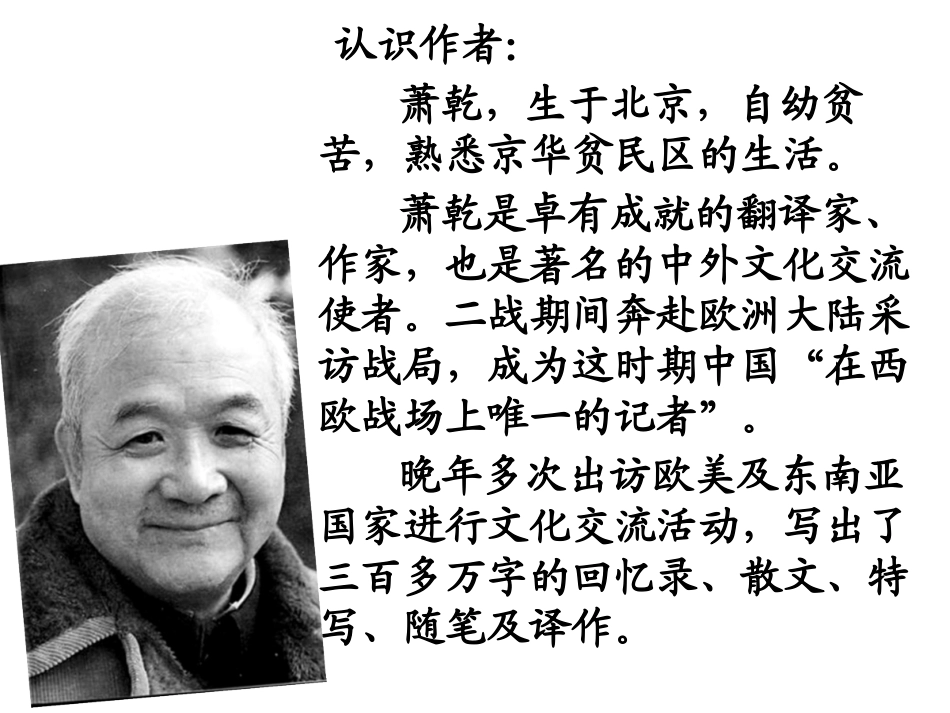 认识作者：
萧乾，生于北京，自幼贫
苦，熟悉京华贫民区的生活。
萧乾是卓有成就的翻译家、
作家，也是著名的中外文化交流
使者。二战期间奔赴欧洲大陆采
访战局，成为这时期中国“在西
欧战场上唯一的记者”。
晚年多次出访欧美及东南亚
国家进行文化交流活动，写出了
三百多万字的回忆录、散文、特
写、随笔及译作。